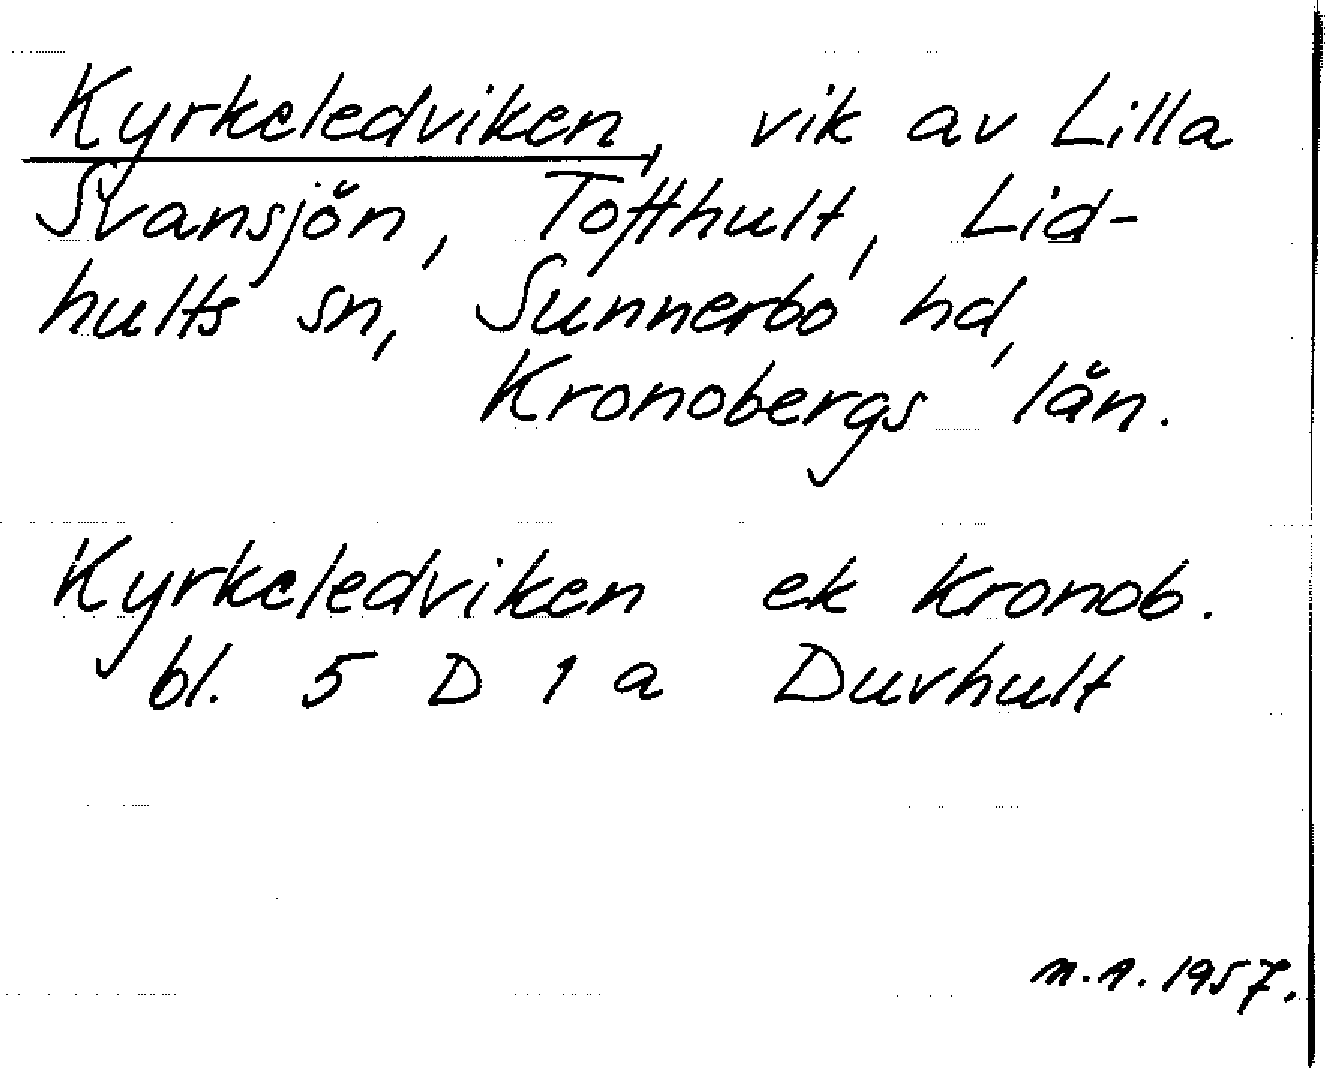 Kyrkeledviken, vik av Lilla
Svansjön, Tofthult, Lid-
hults sn, Sunnerbo hd,
Kronobergs län.
Kyrkeledviken ek Kronob.
bl. 5 D 1 a Duvhult
1957.